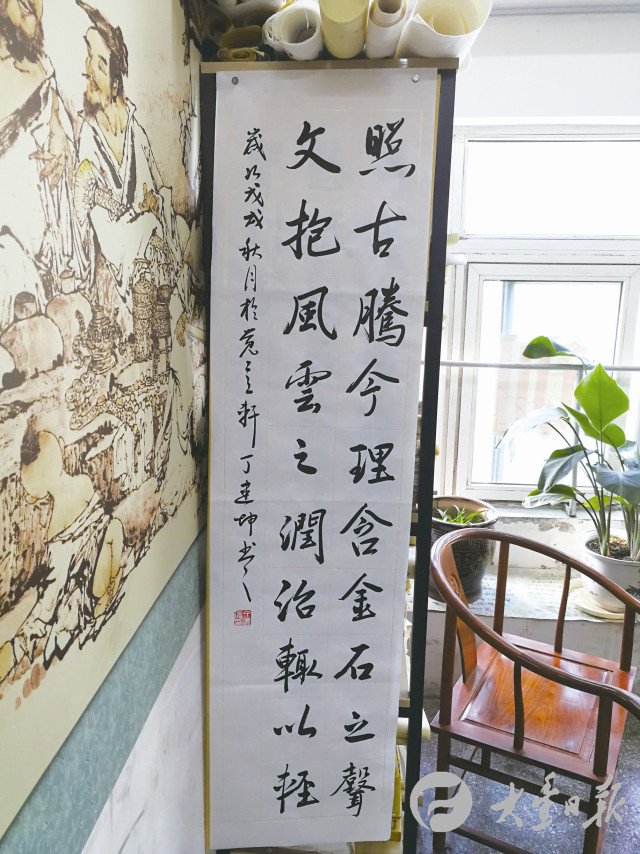 照古騰今理含金石之聲
文抱風雲之潤治輙以輕
歲次戊戌秋月於軒丁建坤書
大众日报